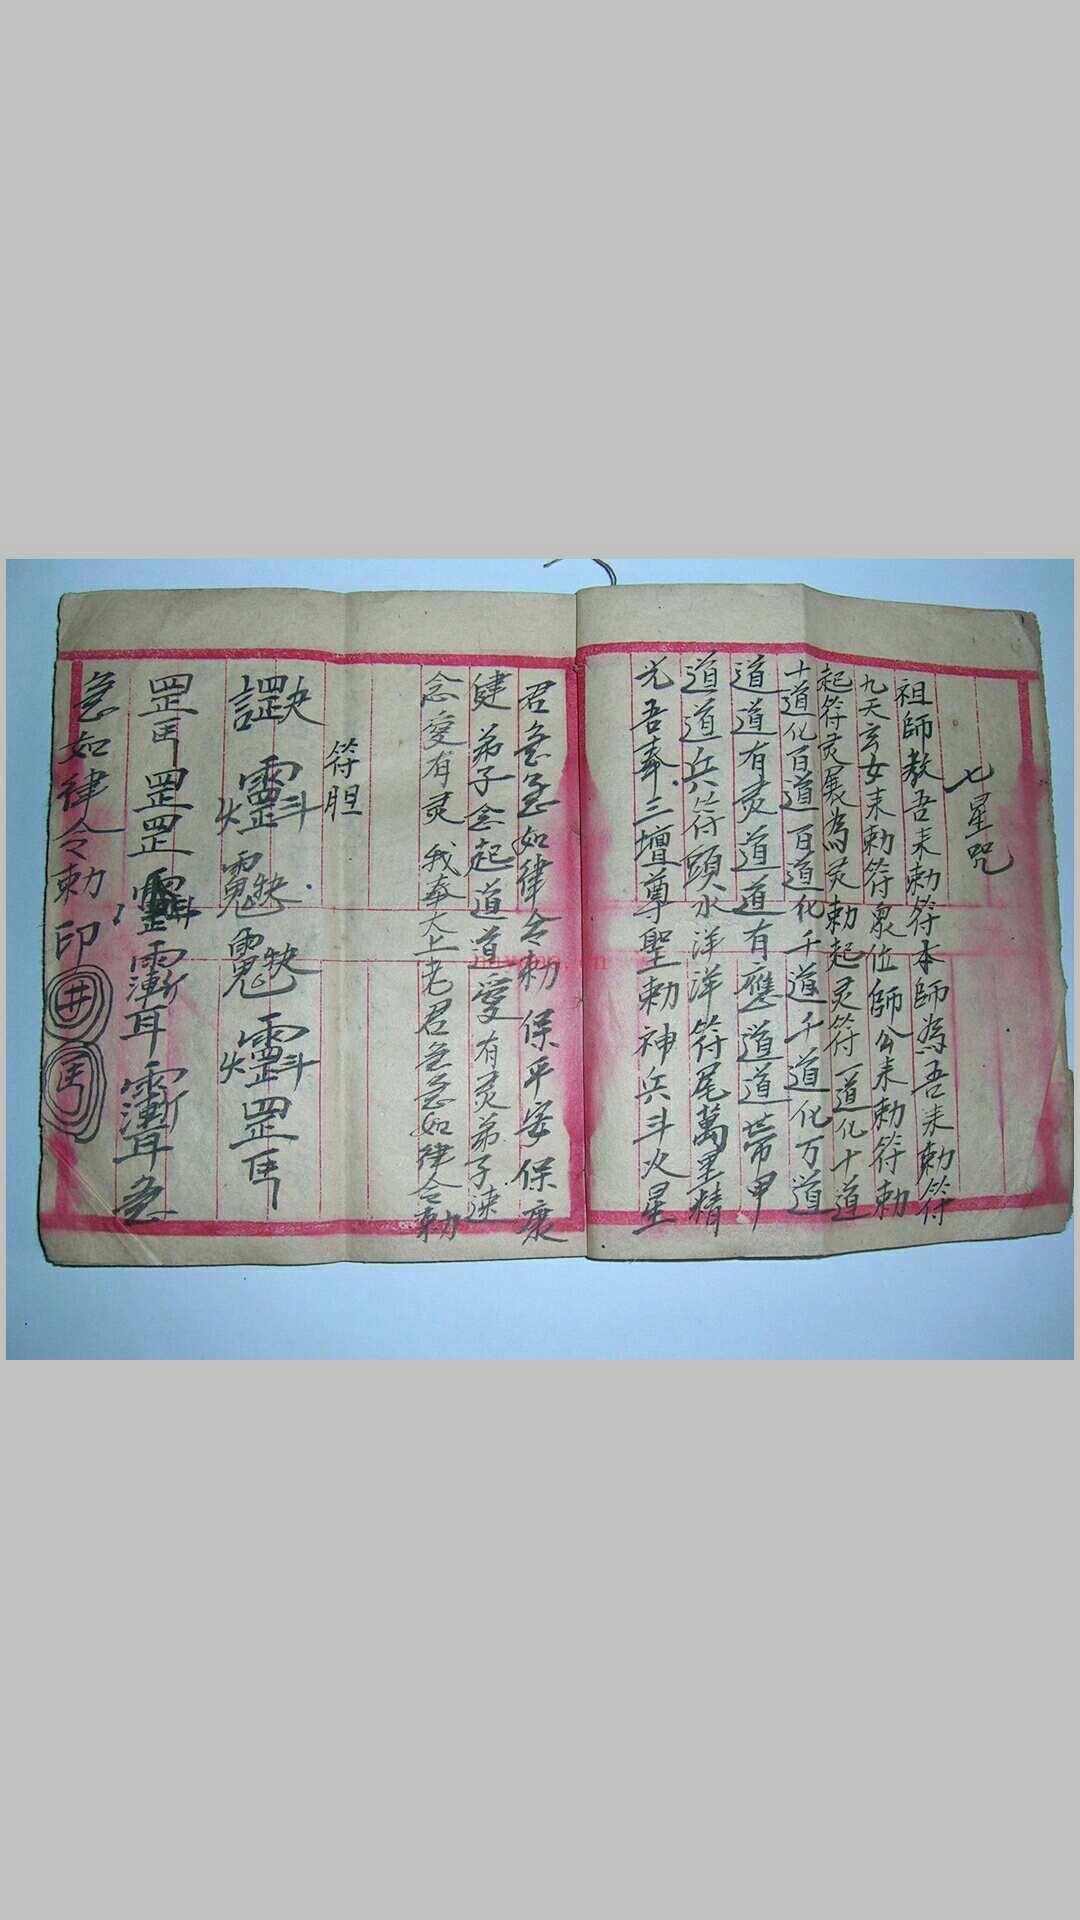 七星咒
祖師教吾耒勅符本師為吾耒勅符
九天玄女耒勅符泉位師公耒勅符勅
起符灵展為灵勅起灵符一道化十道
十道化百道百道化千道千道化万道
道道有灵道道有應道道帶甲
道道兵符頭水洋洋符尾萬里精
光吾奉三壇尊聖勅神兵斗火星
君急急如律令勅保平安保康
健弟子念起道道愛有灵弟子速
念愛有灵我奉太上老君急急如律令勅
符胆
罡 罡罡 急
急如律令勅印
井
nayona.cn